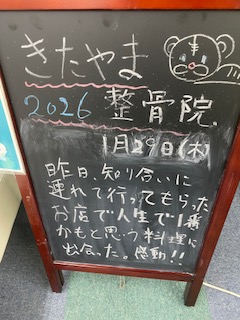 きたやま
2026 整骨院
1月29日(木)
昨日、知り合いに
連れて行ってもらった
お店で人生で1番
かもと思う料理に
出会った。感動!!